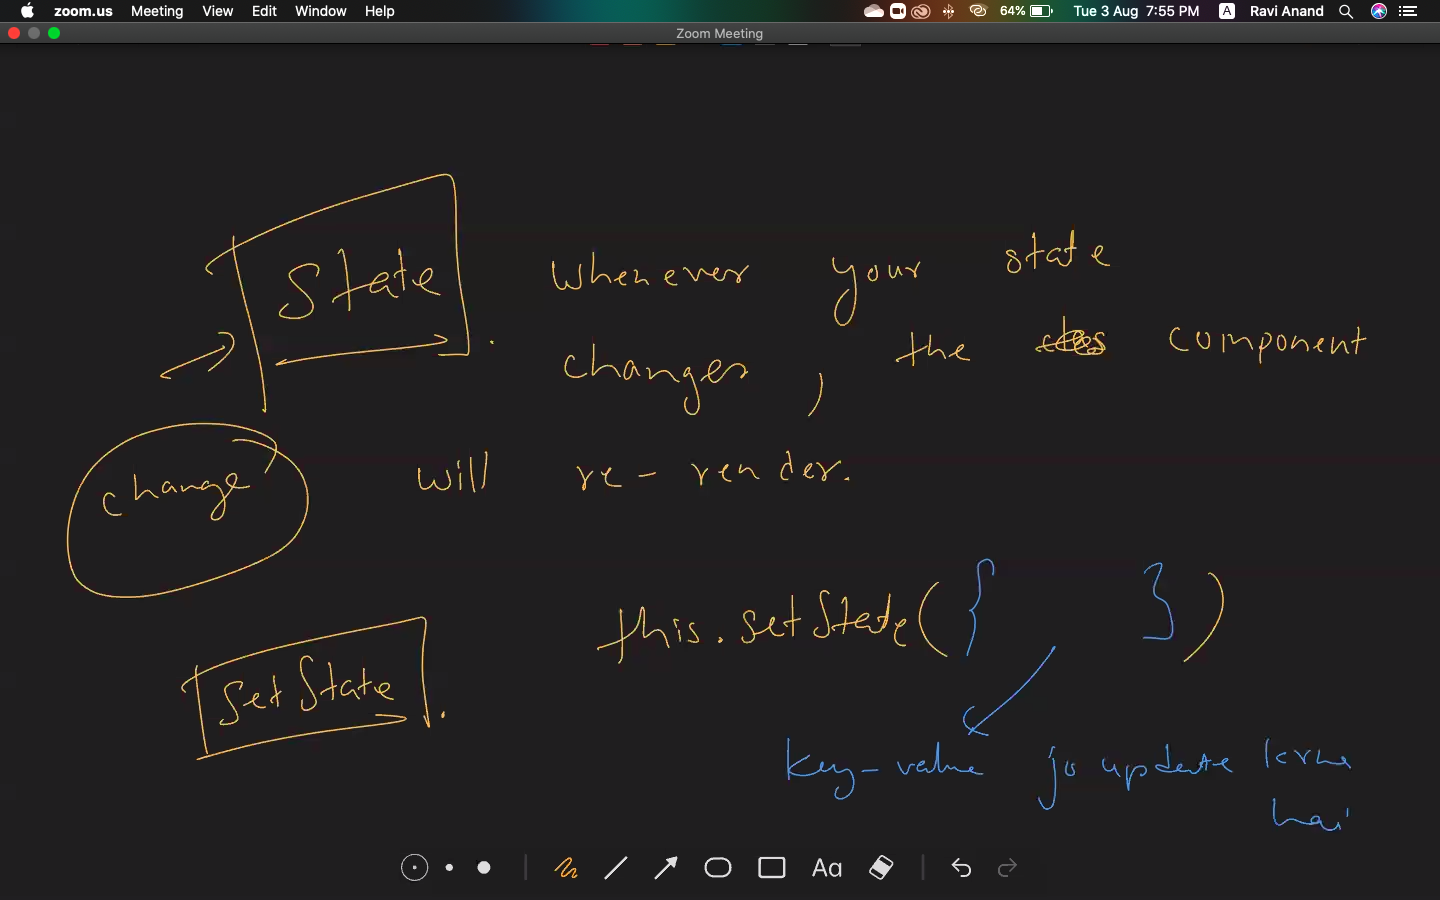 zoom.us Meeting View Edit Window Help 64% Tue 3 Aug 7:55 PM A Ravi Anand
Zoom Meeting
State
Whenever your state
changes, the component
will re-render.
change
this.setState({ })
SetState.
key-value jo update krna
hai
Aa